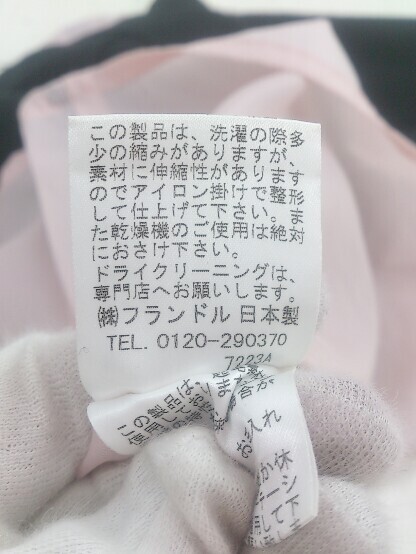 この製品は、洗濯の際多
少の縮みがありますが、
素材に伸縮性があります
のでアイロン掛けで整形
して仕上げて下さい。ま
た乾燥機のご使用は絶対
におさけ下さい。
ドライクリーニングは、
専門店へお願いします。
㈱フランドル 日本製
TEL. 0120-290370
7223A
お入れ